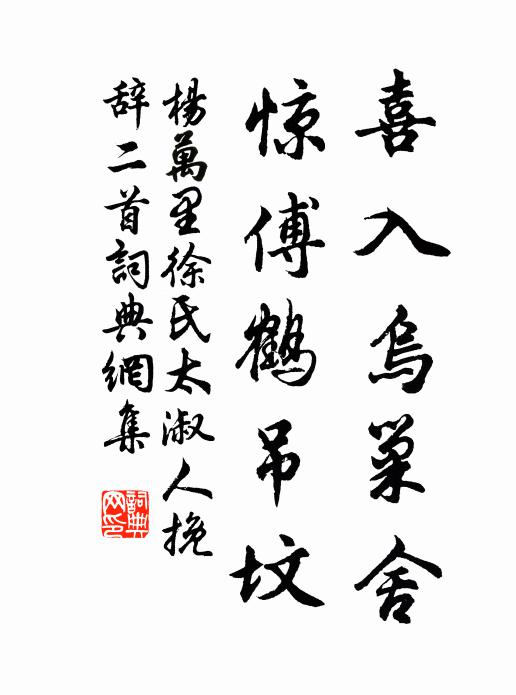 喜入烏巢舍
惊傅鶴吊坟
楊萬里徐氏太淑人挽
辞二首詞典網集
詞典
网印